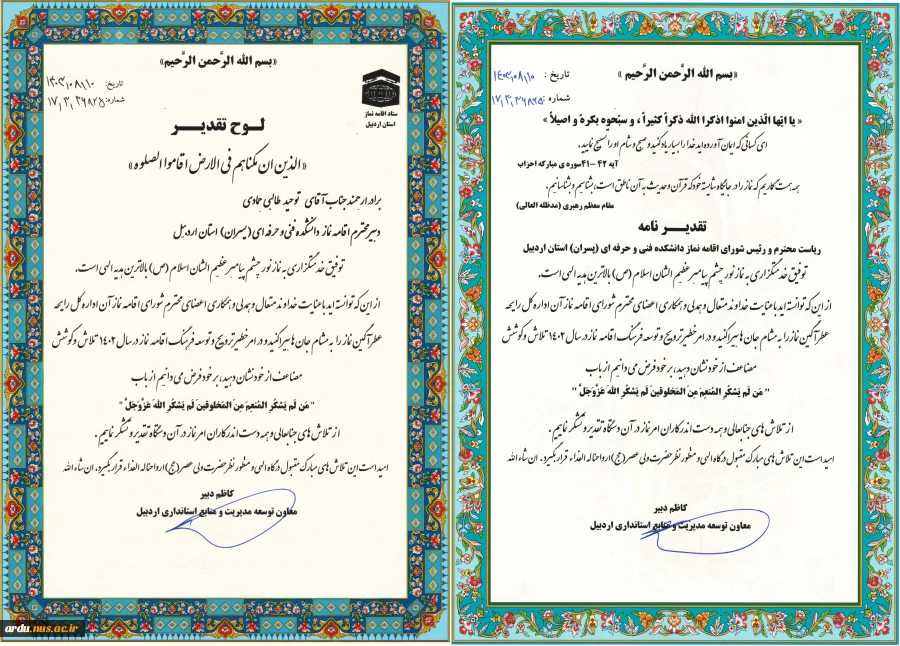 «بسم الله الرَّحمن الرَّحیم»
تاریخ: ۱۴۰۳٫۰۸٫۱۰
شماره:
ستاد اقامه نماز
استان اردبیل
لــوح تقدیــر
«الذین ان مکناهم فی الارض اقاموا الصلوه»
برادر ارجمند جناب آقای توحید طالبی حمادی
دبیر محترم اقامه نماز دانشکده فنی و حرفه ای (پسران) استان اردبیل
توفیق خدمتگزاری به نماز نور چشم پیامبر عظیم الشان اسلام (ص) بالاترین هدیه الهی است.
از این که توانسته اید با عنایت خداوند متعال و همدلی و همکاری اعضای محترم شورای اقامه نماز آن اداره کل رایحه
عطرآگین نماز را به مشام جان ها بپراکنید و در امر خطیر ترویج و توسعه فرهنگ اقامه نماز در سال ۱۴۰۲ تلاش و کوشش
مضاعف از خود نشان دهید، بر خود فرض می دانیم از باب
" مَن لَم یَشکُرِ المُنعِمَ مِنَ المَخلوقینَ لَم یَشکُرِ اللهَ عَزَّوَجَلَّ "
از تلاش های جنابعالی و همه دست اندرکاران امر نماز در آن دستگاه تقدیر و تشکر نماییم.
امید است این تلاش های مبارک مقبول درگاه الهی و منظور نظر حضرت ولی عصر (عج) ارواحنا له الفداء قرار بگیرد. ان شاء الله
کاظم دبیر
معاون توسعه مدیریت و منابع استانداری اردبیل
ardu.nus.ac.ir
«بسم الله الرَّحمن الرَّحیم»
تاریخ : ۱۴۰۳٫۰۸٫۱۰
شماره :
« یا ایّها الّذین امنوا اذکرا الله ذکراً کثیراً ، و سبّحوه بکرهً و اصیلاً »
ای کسانی که ایمان آورده اید خدا را بسیار یاد کنید و صبح و شام او را تسبیح نمایید.
آیه ۴۲ -۴۱سوره ی مبارکه احزاب
همه همت گماریم که نماز را در جایگاه شایسته خود که قرآن و حدیث به آن ناطق است، بشناسیم و بشناسانیم.
مقام معظم رهبری (مدظله العالی)
تقدیــر نامه
ریاست محترم و رئیس شورای اقامه نماز دانشکده فنی و حرفه ای (پسران) استان اردبیل
توفیق خدمتگزاری به نماز نور چشم پیامبر عظیم الشان اسلام (ص) بالاترین هدیه الهی است.
از این که توانسته اید با عنایت خداوند متعال و همدلی و همکاری اعضای محترم شورای اقامه نماز آن اداره کل رایحه
عطرآگین نماز را به مشام جان ها بپراکنید و در امر خطیر ترویج و توسعه فرهنگ اقامه نماز در سال ۱۴۰۲ تلاش و کوشش
مضاعف از خود نشان دهید، بر خود فرض می دانیم از باب
" مَن لَم یَشکُرِ المُنعِمَ مِنَ المَخلوقینَ لَم یَشکُرِ اللهَ عَزَّوَجَلَّ "
از تلاش های جنابعالی و همه دست اندرکاران امر نماز در آن دستگاه تقدیر و تشکر نماییم.
امید است این تلاش های مبارک مقبول درگاه الهی و منظور نظر حضرت ولی عصر (عج) ارواحنا له الفداء قرار بگیرد. ان شاء الله
کاظم دبیر
معاون توسعه مدیریت و منابع استانداری اردبیل